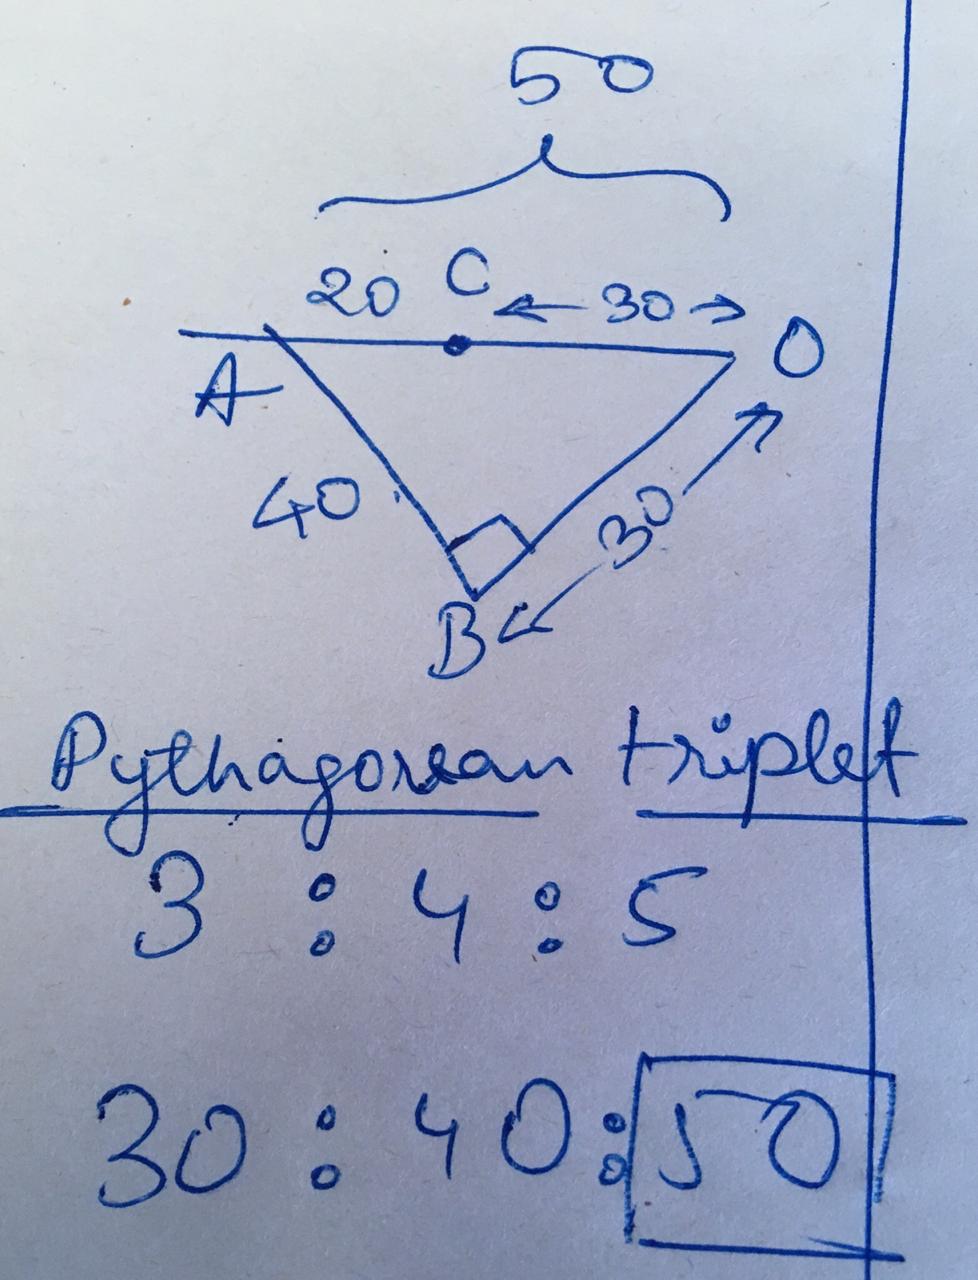 50
20 C 30
A O
40 30
B
Pythagorean triplet
3 : 4 : 5
30 : 40 : 50